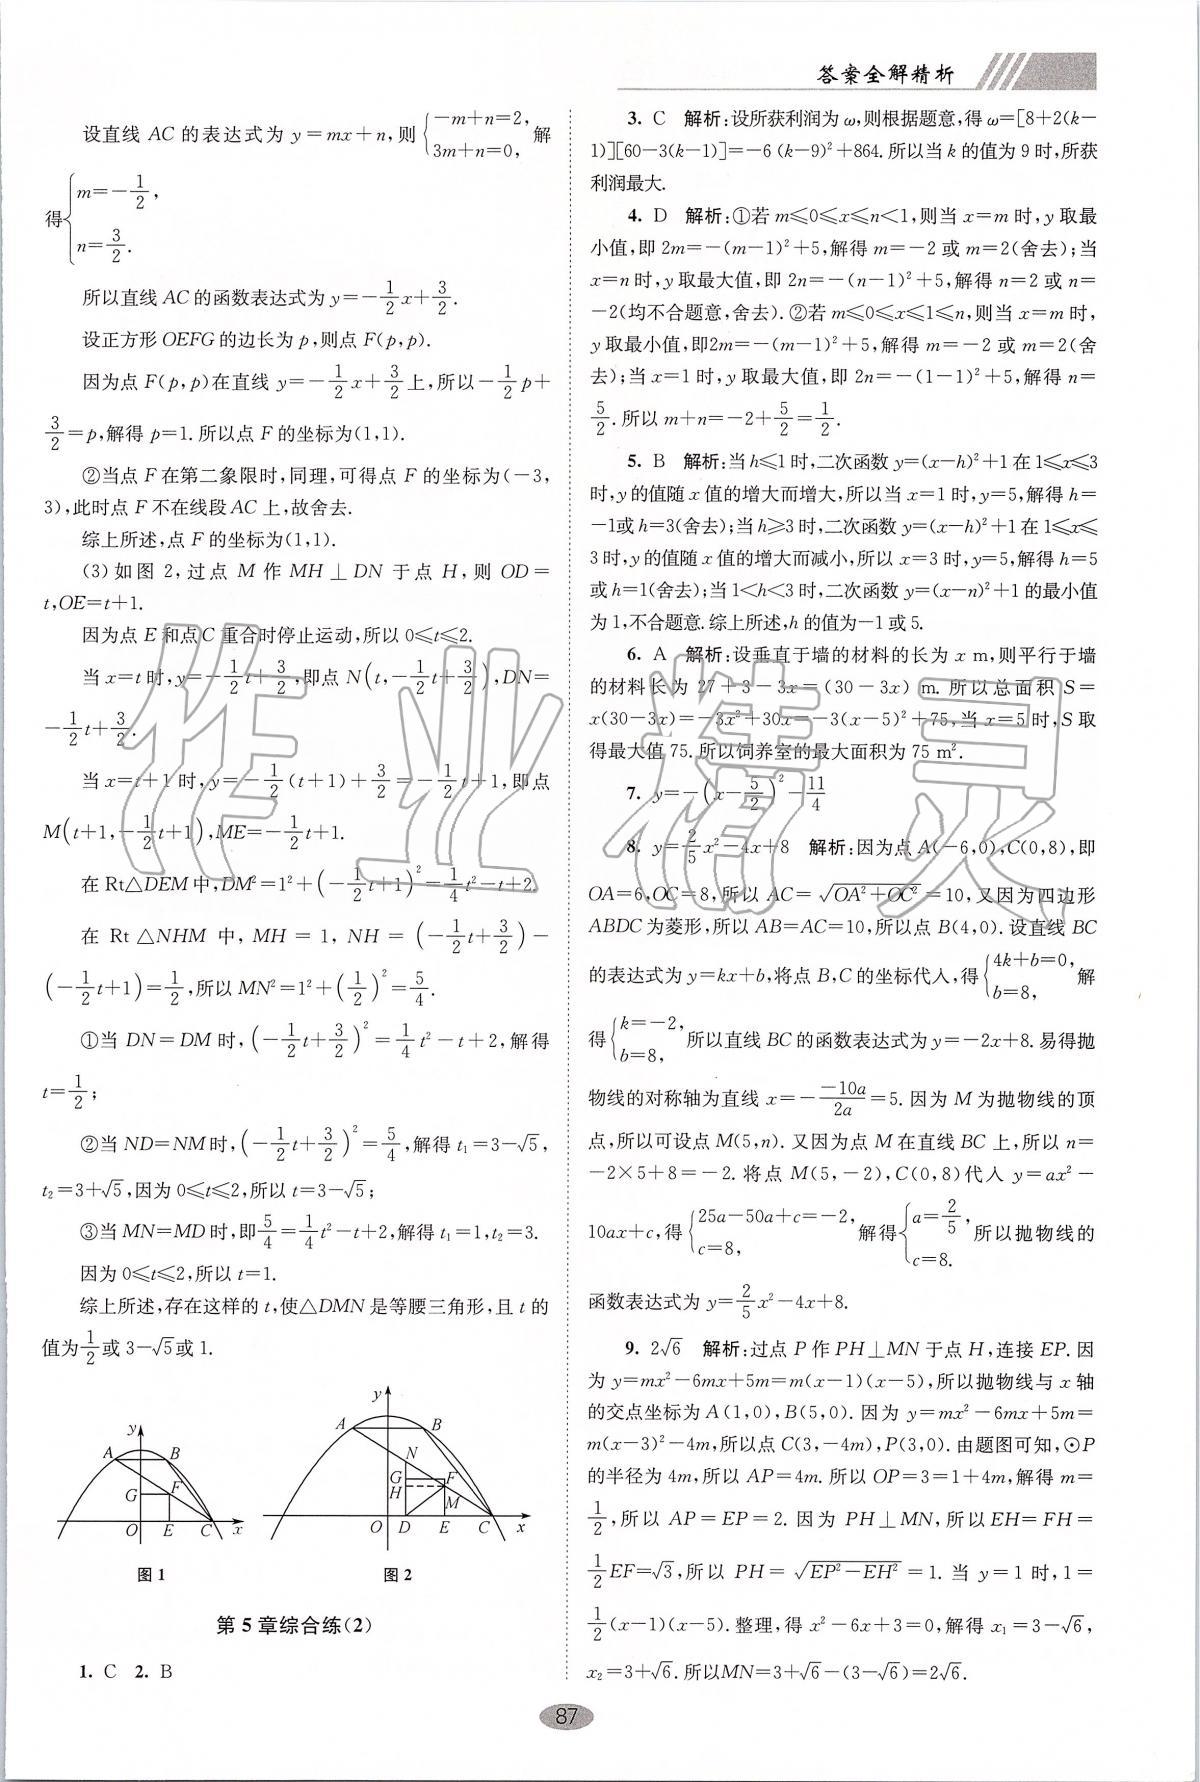 答案全解精析
设直线 AC 的表达式为 y=mx+n,则{-m+n=2, 3m+n=0, 解
得{m=-1/2, n=3/2.
所以直线 AC 的函数表达式为 y=-1/2x+3/2.
设正方形 OEFG 的边长为 p,则点 F(p,p).
因为点 F(p,p)在直线 y=-1/2x+3/2上,所以-1/2p+
3/2=p,解得 p=1.所以点 F 的坐标为(1,1).
②当点 F 在第二象限时,同理,可得点 F 的坐标为(-3,
3),此时点 F 不在线段 AC 上,故舍去.
综上所述,点 F 的坐标为(1,1).
(3)如图 2,过点 M 作 MH⊥DN 于点 H,则 OD=
t,OE=t+1.
因为点 E 和点 C 重合时停止运动,所以 0≤t≤2.
当 x=t 时,y=-1/2t+3/2,即点 N(t,-1/2t+3/2),DN=
-1/2t+3/2.
当 x=t+1 时,y=-1/2(t+1)+3/2=-1/2t+1,即点
M(t+1,-1/2t+1),ME=-1/2t+1.
在 Rt△DEM 中,DM²=1²+(-1/2t+1)²=1/4t²-t+2.
在 Rt△NHM 中,MH=1,NH=(-1/2t+3/2)-
(-1/2t+1)=1/2,所以 MN²=1²+(1/2)²=5/4.
①当 DN=DM 时,(-1/2t+3/2)²=1/4t²-t+2,解得
t=1/2;
②当 ND=NM时,(-1/2t+3/2)²=5/4,解得 t₁=3-√5,
t₂=3+√5,因为 0≤t≤2,所以 t=3-√5;
③当 MN=MD 时,即5/4=1/4t²-t+2,解得 t₁=1,t₂=3.
因为 0≤t≤2,所以 t=1.
综上所述,存在这样的 t,使△DMN 是等腰三角形,且 t 的
值为1/2或 3-√5或 1.
y A B G F O E C x
图 1
y A B N G F H M O D E C x
图 2
第 5 章综合练(2)
1. C 2. B
3. C 解析:设所获利润为 ω,则根据题意,得 ω=[8+2(k-
1)][60-3(k-1)]=-6(k-9)²+864.所以当 k 的值为 9 时,所获
利润最大.
4. D 解析:①若 m≤0≤x≤n<1,则当 x=m 时,y 取最
小值,即 2m=-(m-1)²+5,解得 m=-2 或 m=2(舍去);当
x=n 时,y 取最大值,即 2n=-(n-1)²+5,解得 n=2 或 n=
-2(均不合题意,舍去).②若 m≤0≤x≤1≤n,则当 x=m 时,
y 取最小值,即2m=-(m-1)²+5,解得 m=-2 或 m=2(舍
去);当 x=1 时,y 取最大值,即 2n=-(1-1)²+5,解得 n=
5/2.所以 m+n=-2+5/2=1/2.
5. B 解析:当 h≤1 时,二次函数 y=(x-h)²+1 在 1≤x≤3
时,y 的值随 x 值的增大而增大,所以当 x=1 时,y=5,解得 h=
-1或 h=3(舍去);当 h≥3 时,二次函数 y=(x-h)²+1 在 1≤x≤
3 时,y 的值随 x 值的增大而减小,所以 x=3 时,y=5,解得 h=5
或 h=1(舍去);当 1<h<3 时,二次函数 y=(x-n)²+1 的最小值
为 1,不合题意.综上所述,h 的值为-1 或 5.
6. A 解析:设垂直于墙的材料的长为 x m,则平行于墙
的材料长为 27+3-3x=(30-3x) m.所以总面积 S=
x(30-3x)=-3x²+30x=-3(x-5)²+75,当 x=5 时,S 取
得最大值 75.所以饲养室的最大面积为 75 m².
7. y=-(x-5/2)²-11/4
8. y=2/5x²-4x+8 解析:因为点 A(-6,0),C(0,8),即
OA=6,OC=8,所以 AC=√(OA²+OC²)=10,又因为四边形
ABDC 为菱形,所以 AB=AC=10,所以点 B(4,0).设直线 BC
的表达式为 y=kx+b,将点 B,C 的坐标代入,得{4k+b=0, b=8, 解
得{k=-2, b=8, 所以直线 BC 的函数表达式为 y=-2x+8.易得抛
物线的对称轴为直线 x=--10a/2a=5.因为 M 为抛物线的顶
点,所以可设点 M(5,n).又因为点 M 在直线 BC 上,所以 n=
-2×5+8=-2.将点 M(5,-2),C(0,8)代入 y=ax²-
10ax+c,得{25a-50a+c=-2, c=8, 解得{a=2/5, c=8. 所以抛物线的
函数表达式为 y=2/5x²-4x+8.
9. 2√6 解析:过点 P 作 PH⊥MN 于点 H,连接 EP.因
为 y=mx²-6mx+5m=m(x-1)(x-5),所以抛物线与 x 轴
的交点坐标为 A(1,0),B(5,0).因为 y=mx²-6mx+5m=
m(x-3)²-4m,所以点 C(3,-4m),P(3,0).由题图可知,⊙P
的半径为 4m,所以 AP=4m.所以 OP=3=1+4m,解得 m=
1/2,所以 AP=EP=2.因为 PH⊥MN,所以 EH=FH=
1/2EF=√3,所以 PH=√(EP²-EH²)=1.当 y=1 时,1=
1/2(x-1)(x-5).整理,得 x²-6x+3=0,解得 x₁=3-√6,
x₂=3+√6.所以MN=3+√6-(3-√6)=2√6.
87
作业精灵